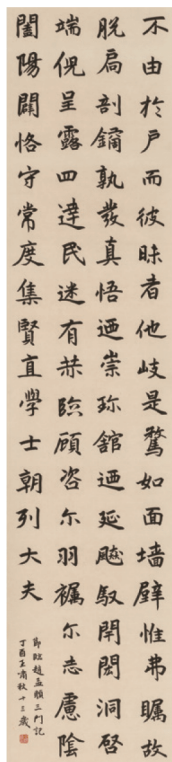 不由於戶而彼昧者他岐是騖如面墙壁惟弗矚故
脫扃剖鐍孰發真悟迺崇珎館迺延飈馭閈閎洞啓
端倪呈露四達民迷有恭臨顧咨尓羽襴尓志慮陰
闔陽闢恪守常度集賢直學士朝列大夫
節臨趙孟頫三門記
丁酉王肅秋十三歲